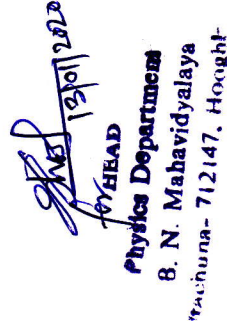 13/01/2020
for HEAD
Physics Department
B. N. Mahavidyalaya
712147, Hooghl-